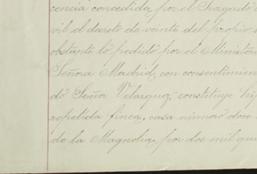 cencia concedida por el Juzgado
vil el decreto de venta del propio
obstante lo pedido por el Ministerio
Señora Madrid, con consentimien
do Señor Velazquez, constituye hi
repetida finca, casa número dos
de la Magnolia, por dos mil qu